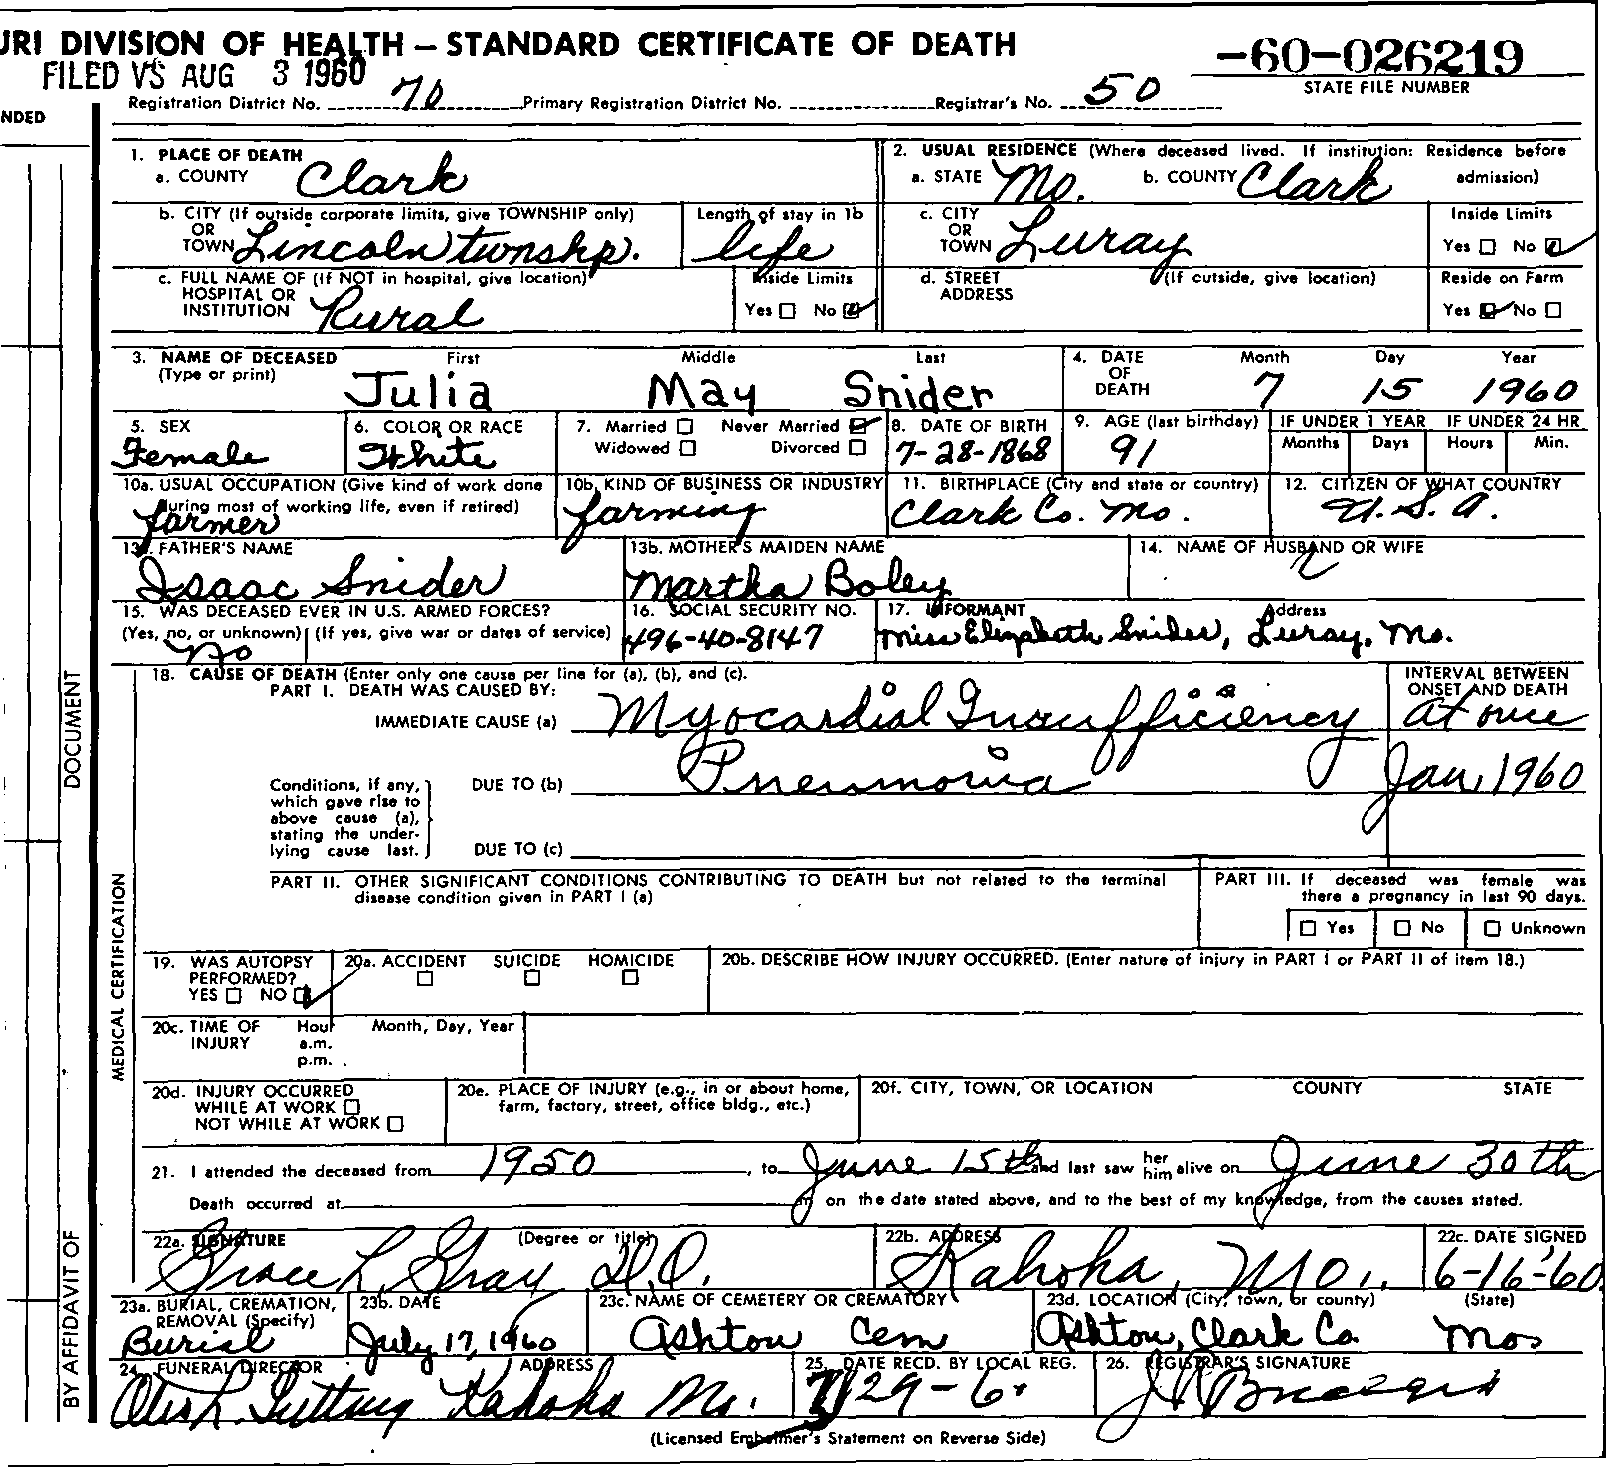 URI DIVISION OF HEALTH — STANDARD CERTIFICATE OF DEATH
-60-026219
FILED VS AUG 3 1960
STATE FILE NUMBER
Registration District No. 70 Primary Registration District No. Registrar's No. 50
NDED
1. PLACE OF DEATH
a. COUNTY Clark
2. USUAL RESIDENCE (Where deceased lived. If institution: Residence before admission)
a. STATE Mo. b. COUNTY Clark
b. CITY (If outside corporate limits, give TOWNSHIP only) OR TOWN Lincoln twnshp.
Length of stay in 1b life
c. CITY OR TOWN Luray
Inside Limits Yes No
c. FULL NAME OF (If NOT in hospital, give location) HOSPITAL OR INSTITUTION Rural
Inside Limits Yes No
d. STREET ADDRESS (If outside, give location)
Reside on Farm Yes No
3. NAME OF DECEASED (Type or print) First Middle Last
Julia May Snider
4. DATE OF DEATH Month Day Year
7 15 1960
5. SEX Female
6. COLOR OR RACE White
7. Married Never Married Widowed Divorced
8. DATE OF BIRTH 7-28-1868
9. AGE (last birthday) 91
IF UNDER 1 YEAR Months Days
IF UNDER 24 HR Hours Min.
10a. USUAL OCCUPATION (Give kind of work done during most of working life, even if retired) farmer
10b. KIND OF BUSINESS OR INDUSTRY farming
11. BIRTHPLACE (City and state or country) Clark Co. Mo.
12. CITIZEN OF WHAT COUNTRY U.S.A.
13a. FATHER'S NAME Isaac Snider
13b. MOTHER'S MAIDEN NAME Martha Boley
14. NAME OF HUSBAND OR WIFE
15. WAS DECEASED EVER IN U.S. ARMED FORCES? (Yes, no, or unknown) (If yes, give war or dates of service) No
16. SOCIAL SECURITY NO. 496-40-8147
17. INFORMANT Address
Miss Elizabeth Snider, Luray, Mo.
18. CAUSE OF DEATH (Enter only one cause per line for (a), (b), and (c).
PART I. DEATH WAS CAUSED BY:
INTERVAL BETWEEN ONSET AND DEATH
IMMEDIATE CAUSE (a) Myocardial Insufficiency at once
Conditions, if any, which gave rise to above cause (a), stating the underlying cause last.
DUE TO (b) Pneumonia Jan, 1960
DUE TO (c)
PART II. OTHER SIGNIFICANT CONDITIONS CONTRIBUTING TO DEATH but not related to the terminal disease condition given in PART I (a)
PART III. If deceased was female was there a pregnancy in last 90 days.
Yes No Unknown
19. WAS AUTOPSY PERFORMED? YES NO
20a. ACCIDENT SUICIDE HOMICIDE
20b. DESCRIBE HOW INJURY OCCURRED. (Enter nature of injury in PART I or PART II of item 18.)
20c. TIME OF INJURY Hour a.m. p.m. Month, Day, Year
20d. INJURY OCCURRED WHILE AT WORK NOT WHILE AT WORK
20e. PLACE OF INJURY (e.g., in or about home, farm, factory, street, office bldg., etc.)
20f. CITY, TOWN, OR LOCATION COUNTY STATE
21. I attended the deceased from 1950, to June 15th and last saw her him alive on June 30th
Death occurred at m on the date stated above, and to the best of my knowledge, from the causes stated.
22a. SIGNATURE (Degree or title) Grace L. Gray D.O.
22b. ADDRESS Kahoka, Mo.
22c. DATE SIGNED 6-16-'60
23a. BURIAL, CREMATION, REMOVAL (Specify) Burial
23b. DATE July 17, 1960
23c. NAME OF CEMETERY OR CREMATORY Ashton Cem
23d. LOCATION (City, town, or county) (State) Ashton, Clark Co. Mo.
24. FUNERAL DIRECTOR ADDRESS
Kahoka Mo.
25. DATE RECD. BY LOCAL REG.
26. REGISTRAR'S SIGNATURE
(Licensed Embalmer's Statement on Reverse Side)
DOCUMENT
MEDICAL CERTIFICATION
BY AFFIDAVIT OF